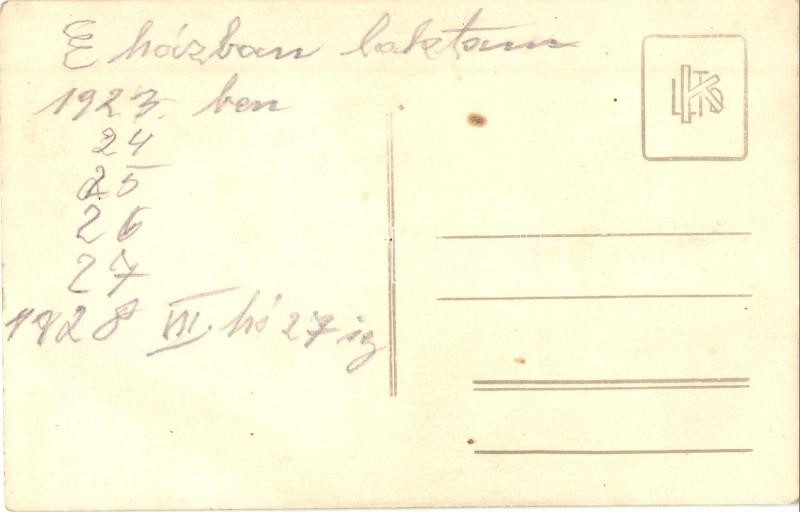 E házban laktam
1923. ben
24
25
26
27
1928 VII. hó 27 ig